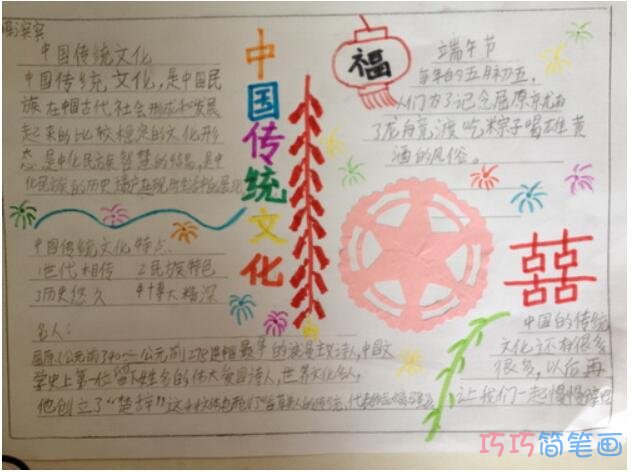 中国传统文化
中国传统文化,是中国民
族在中国古代社会形成和发展
起来的比较稳定的文化形
态,是中华民族智慧的结晶,是中
化民族的历史
中国传统文化
福
端午节
每年的五月初五,
人们为了记念屈原
了龙舟竞渡 吃粽子喝雄黄
酒的风俗。
中国传统文化特点
1世代相传 2民族特色
3历史悠久 4博大精深
囍
名人:
屈原(公元前340-公元前278)是中国最早的浪漫主义诗人,中国文
学史上第一位留下姓名的伟大爱国诗人,世界文化名人,
他创立了“楚辞”这
中国的传统
文化还有很多
很多,以后再
让我们一起慢慢
巧巧简笔画